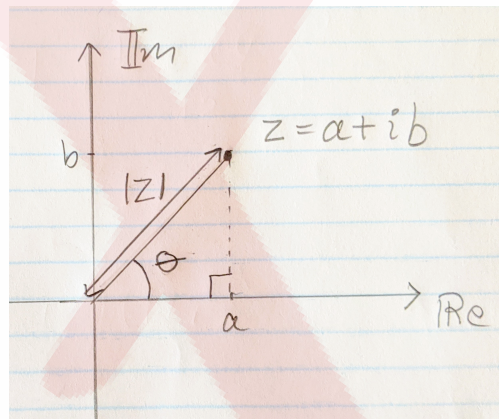 Im
z = a + ib
b
|Z|
θ
a
Re